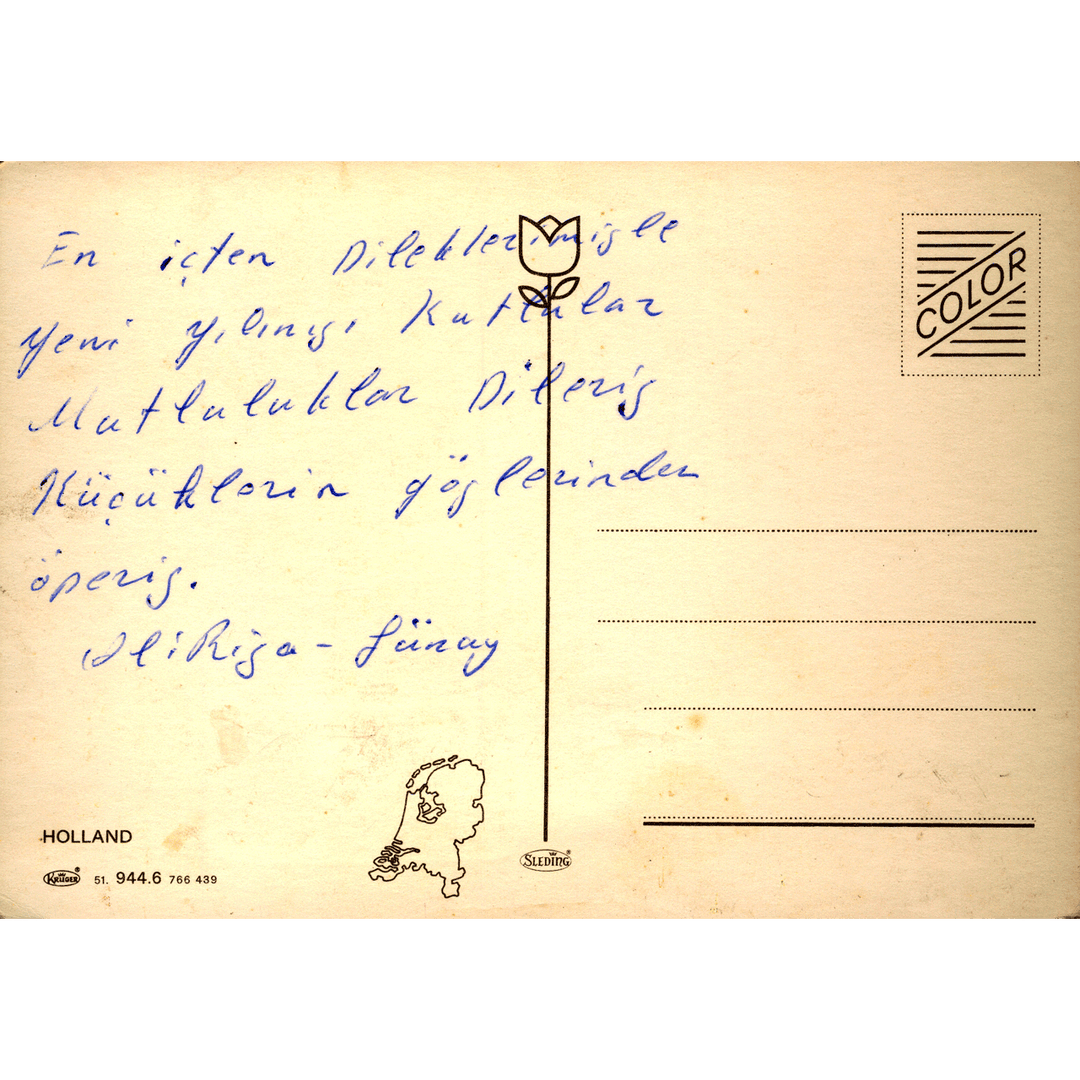 En içten Dileklerimizle
Yeni yılınızı Kutlular
Mutluluklar Dileriz
Küçüklerin gözlerinden
öperiz.
Ali Rıza - Günay
COLOR
HOLLAND
KRÜGER
51. 944.6 766 439
SLEDING